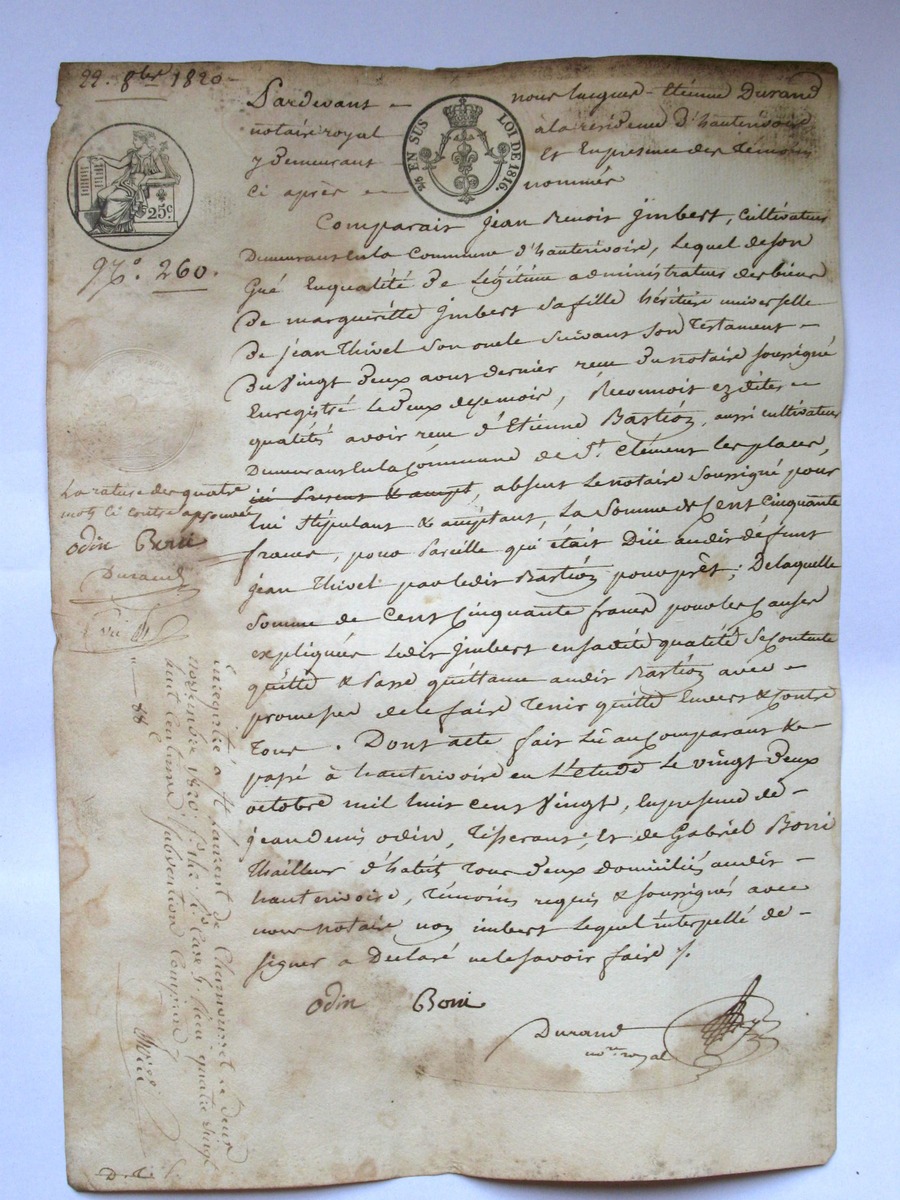 22. 8bre 1820
Pardevant nous Jacques Etienne Durand
notaire royal à la résidence d'hauterivoire
y demeurant et En presence des temoins
ci après nommés
EN SUS LOI DE 1816
25c
No. 260.
Comparait Jean Benoit Jmbert, cultivateur
Demeurant En la Commune d'hauterivoire, Lequel de son
Gré En qualité De Légitime administrateur des biens
De margueritte Jmbert sa fille héritiere universelle
De jean Thivel son oncle suivant son Testament
Du Vingt Deux aout dernier recu Du notaire soussigné
Enregistré Le Deux de ce mois, Reconnoit ezdites
qualités avoir recu d'Etienne Bastion, aussi cultivateur
Demeurant En la Commune de St. Clément les places,
absent Le notaire Soussigné pour
lui stipulant & acceptant, La Somme de Cent cinquante
francs, pour Pareille qui était Düe audit défunt
jean Thivel par ledit Bastion pour prêt; De laquelle
Somme de Cent Cinquante francs pour les Causes
expliquées Ledit Jmbert en sadite qualité Se contente
quitte & Passe quittance audit Bastion avec
promesse de le faire Tenir quitte Envers & Contre
Tous. Dont acte fait Lu au Comparant &
passé à hauterivoire en L'etude Le vingt Deux
octobre mil huit cent Vingt, En presence de
jean Denis odin, Tisserant; Et de Gabriel Boni
Thailleur d'habits Tous Deux domiciliés audit
hauterivoire, Témoins requis & soussignés avec
nous notaire, non imbert Lequel interpellé de
signer a Declaré ne le savoir faire /.
odin Boni
Durand
nore royal
La rature des quatre
mots ci contre aprouvée
odin Boni
Durand
Enregistré à St Laurent de Chamousset le deux
novembre 1820. quatre vingt
huit centimes Subvention Comprise
88